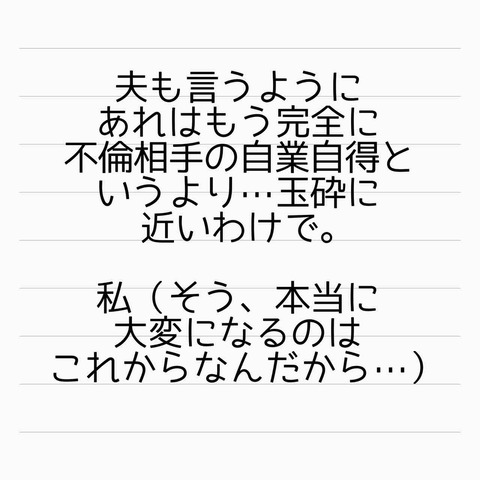 夫も言うように
あれはもう完全に
不倫相手の自業自得と
いうより…玉砕に
近いわけで。
私（そう、本当に
大変になるのは
これからなんだから…）